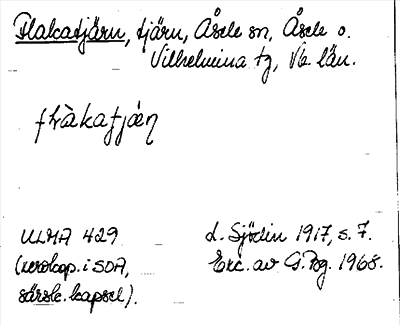 Flakatjärn, tjärn, Åsele sn, Åsele o.
Vilhelmina tg, Vb. län.
ULMA 429
(xerokop. i SOA,
särsk. kapsel).
L. Sjödin 1917, s. 7.
Exc. av G. Pbg. 1968.